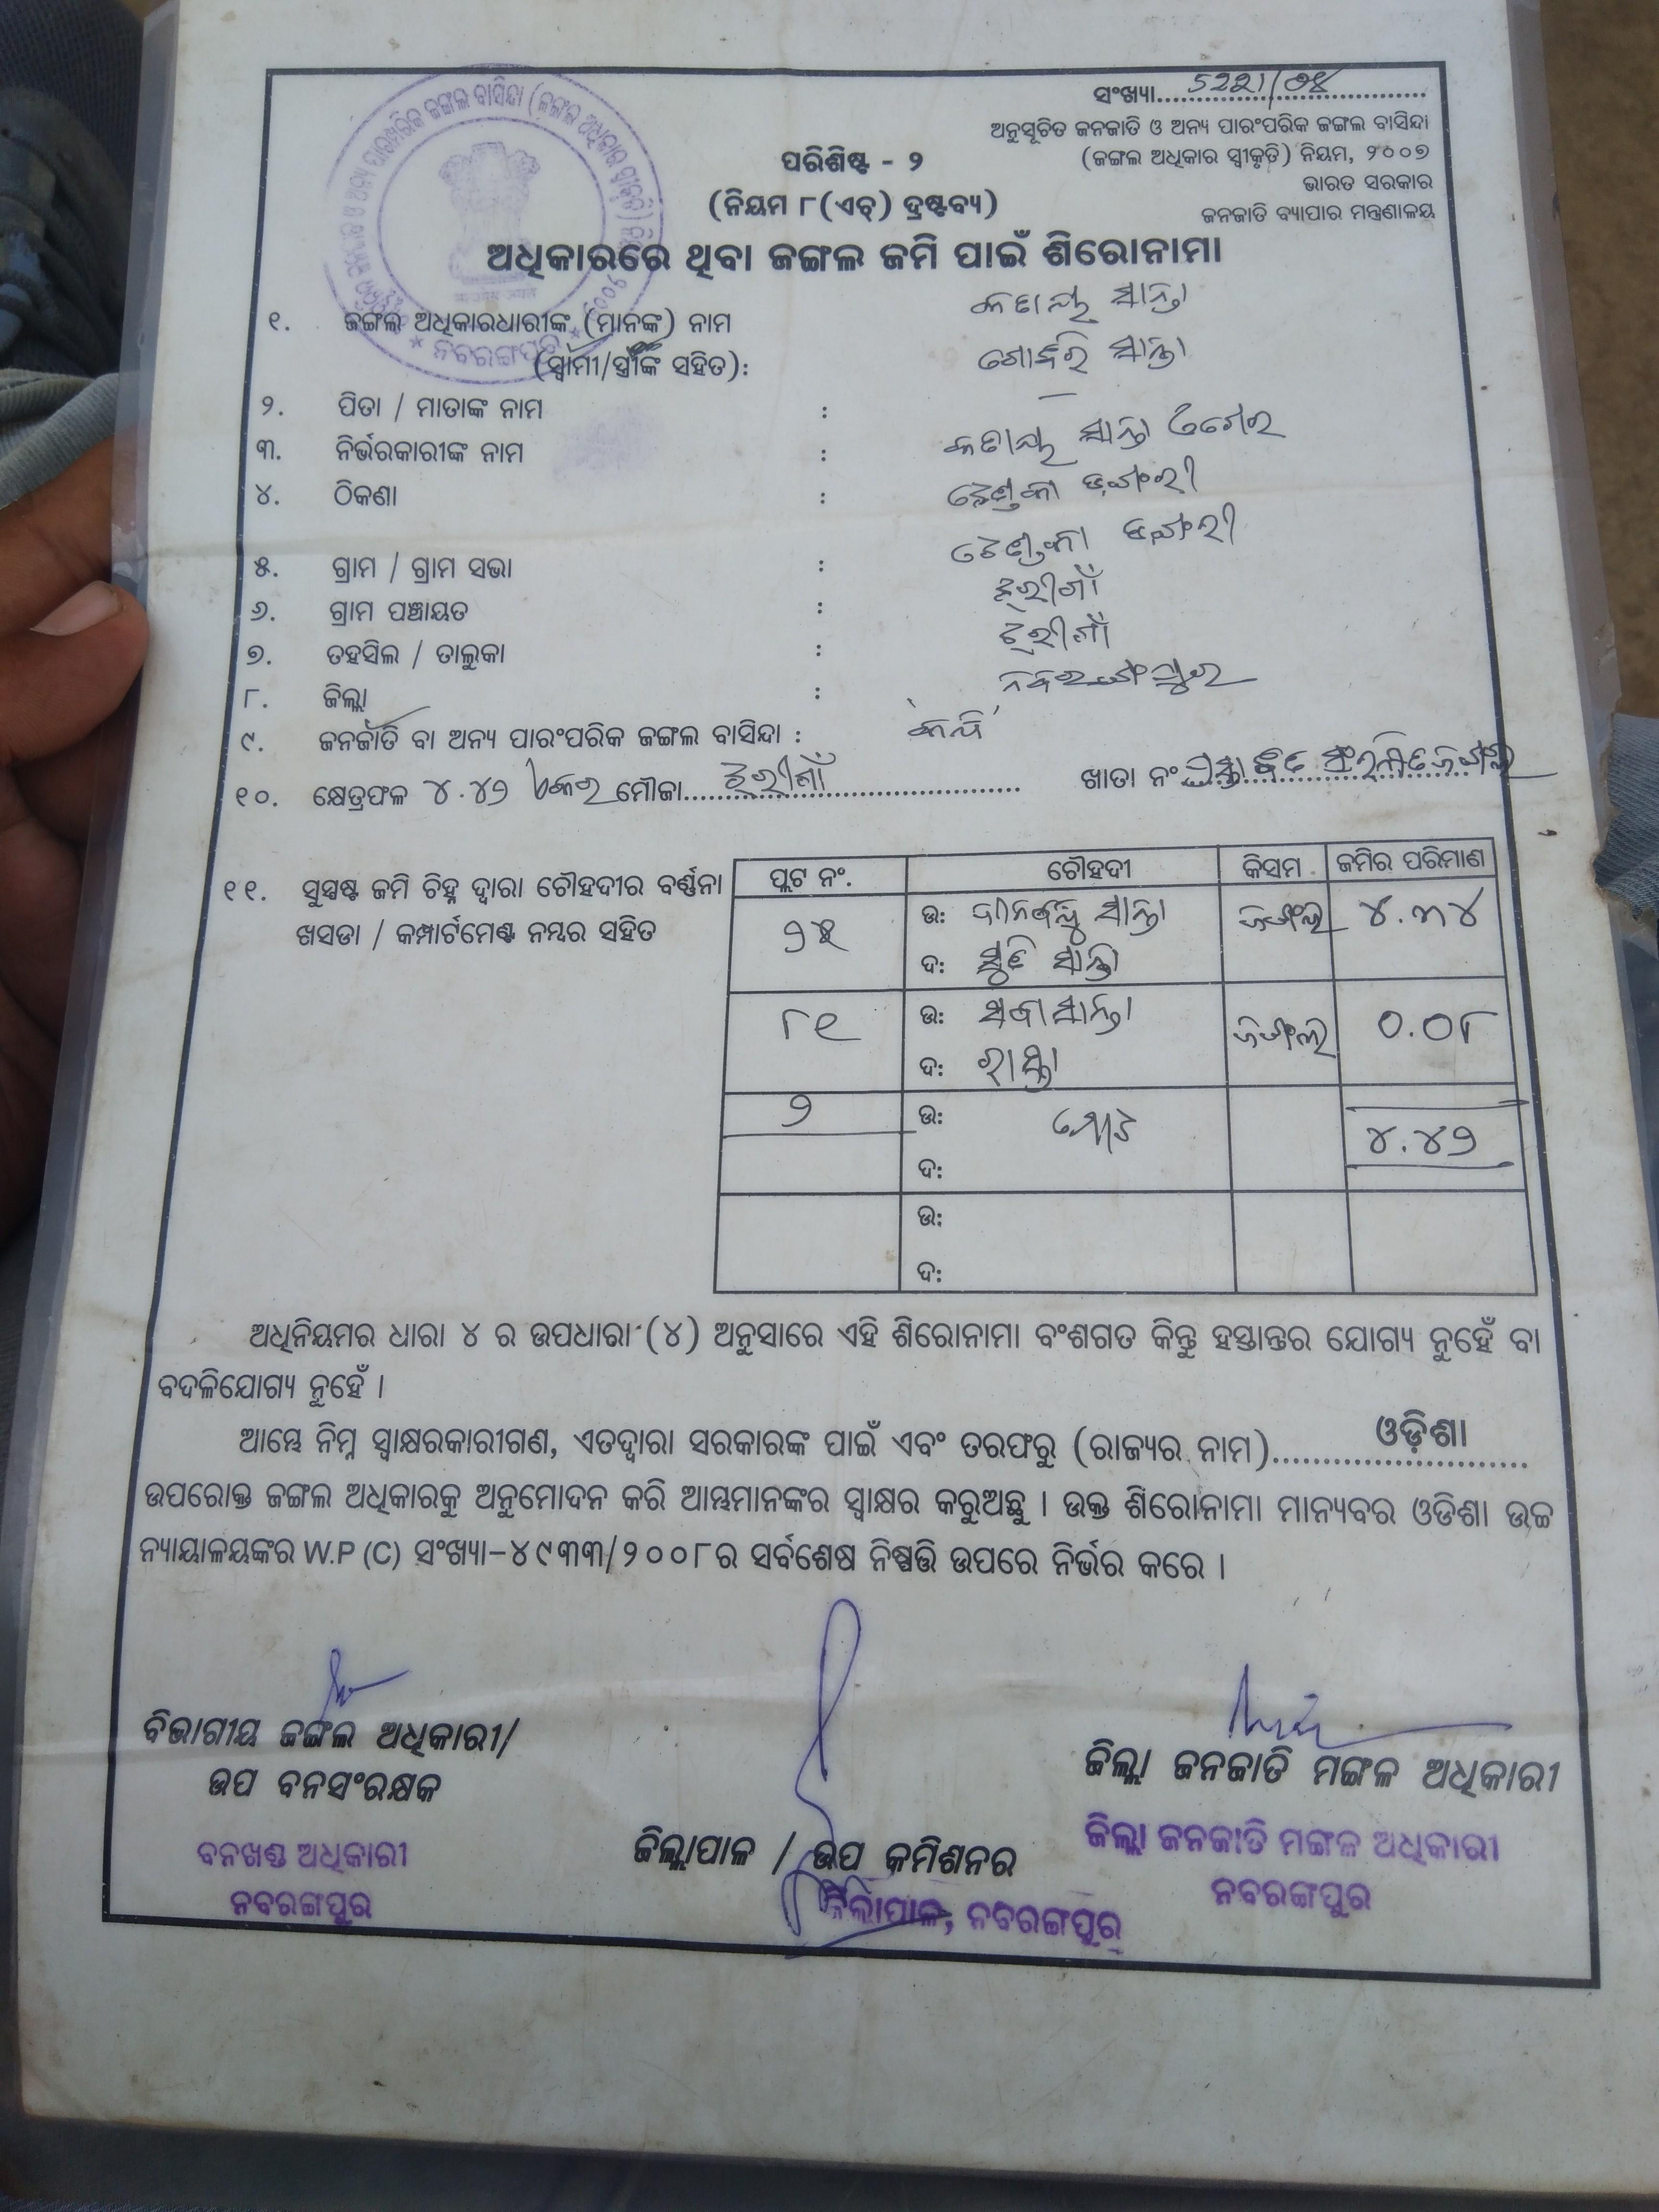 ସଂଖ୍ୟା.....5221/08
ଅନୁସୂଚିତ ଜନଜାତି ଓ ଅନ୍ୟ ପାରଂପରିକ ଜଙ୍ଗଲ ବାସିନ୍ଦା
(ଜଙ୍ଗଲ ଅଧିକାର ସ୍ୱୀକୃତି) ନିୟମ, ୨୦୦୭
ଭାରତ ସରକାର
ଜନଜାତି ବ୍ୟାପାର ମନ୍ତ୍ରଣାଳୟ
ପରିଶିଷ୍ଟ - ୨
(ନିୟମ ୮(ଏଚ୍) ଦ୍ରଷ୍ଟବ୍ୟ)
ଅଧିକାରରେ ଥିବା ଜଙ୍ଗଲ ଜମି ପାଇଁ ଶିରୋନାମା
୧. ଜଙ୍ଗଲ ଅଧିକାରଧାରୀଙ୍କ (ମାନଙ୍କ) ନାମ ସାନ୍ତା
(ସ୍ୱାମୀ/ସ୍ତ୍ରୀଙ୍କ ସହିତ): ସାନ୍ତା
୨. ପିତା / ମାତାଙ୍କ ନାମ : —
୩. ନିର୍ଭରକାରୀଙ୍କ ନାମ : ସାନ୍ତା
୪. ଠିକଣା :
୫. ଗ୍ରାମ / ଗ୍ରାମ ସଭା :
୬. ଗ୍ରାମ ପଞ୍ଚାୟତ :
୭. ତହସିଲ / ତାଲୁକା :
୮. ଜିଲ୍ଲା : ନବରଙ୍ଗପୁର
୯. ଜନଜାତି ବା ଅନ୍ୟ ପାରଂପରିକ ଜଙ୍ଗଲ ବାସିନ୍ଦା :
୧୦. କ୍ଷେତ୍ରଫଳ ୪.୪୨ ଏକର ମୌଜା..... ଖାତା ନଂ
୧୧. ସୁସ୍ପଷ୍ଟ ଜମି ଚିହ୍ନ ଦ୍ୱାରା ଚୌହଦୀର ବର୍ଣ୍ଣନା
ଖସଡା / କମ୍ପାର୍ଟମେଣ୍ଟ ନମ୍ବର ସହିତ
ପ୍ଲଟ ନଂ. ଚୌହଦୀ କିସମ ଜମିର ପରିମାଣ
୨୫ ଉ: ଦୀନବନ୍ଧୁ ସାନ୍ତା ଜଙ୍ଗଲ ୪.୩୪
ଦ: ସାନ୍ତା
୮୧ ଉ: ସାନ୍ତା ଜଙ୍ଗଲ ୦.୦୮
ଦ: ରାସ୍ତା
୨ ଉ: ମୋଟ ୪.୪୨
ଦ:
ଉ:
ଦ:
ଅଧିନିୟମର ଧାରା ୪ ର ଉପଧାରା (୪) ଅନୁସାରେ ଏହି ଶିରୋନାମା ବଂଶଗତ କିନ୍ତୁ ହସ୍ତାନ୍ତର ଯୋଗ୍ୟ ନୁହେଁ ବା
ବଦଳିଯୋଗ୍ୟ ନୁହେଁ ।
ଆମ୍ଭେ ନିମ୍ନ ସ୍ୱାକ୍ଷରକାରୀଗଣ, ଏତଦ୍ୱାରା ସରକାରଙ୍କ ପାଇଁ ଏବଂ ତରଫରୁ (ରାଜ୍ୟର ନାମ).....ଓଡ଼ିଶା
ଉପରୋକ୍ତ ଜଙ୍ଗଲ ଅଧିକାରକୁ ଅନୁମୋଦନ କରି ଆମ୍ଭମାନଙ୍କର ସ୍ୱାକ୍ଷର କରୁଅଛୁ । ଉକ୍ତ ଶିରୋନାମା ମାନ୍ୟବର ଓଡିଶା ଉଚ୍ଚ
ନ୍ୟାୟାଳୟଙ୍କର W.P (C) ସଂଖ୍ୟା-୪୯୩୩/୨୦୦୮ର ସର୍ବଶେଷ ନିଷ୍ପତ୍ତି ଉପରେ ନିର୍ଭର କରେ ।
ବିଭାଗୀୟ ଜଙ୍ଗଲ ଅଧିକାରୀ/
ଉପ ବନସଂରକ୍ଷକ
ବନଖଣ୍ଡ ଅଧିକାରୀ
ନବରଙ୍ଗପୁର
ଜିଲ୍ଲାପାଳ / ଉପ କମିଶନର
ଜିଲ୍ଲାପାଳ, ନବରଙ୍ଗପୁର
ଜିଲ୍ଲା ଜନଜାତି ମଙ୍ଗଳ ଅଧିକାରୀ
ଜିଲ୍ଲା ଜନଜାତି ମଙ୍ଗଳ ଅଧିକାରୀ
ନବରଙ୍ଗପୁର